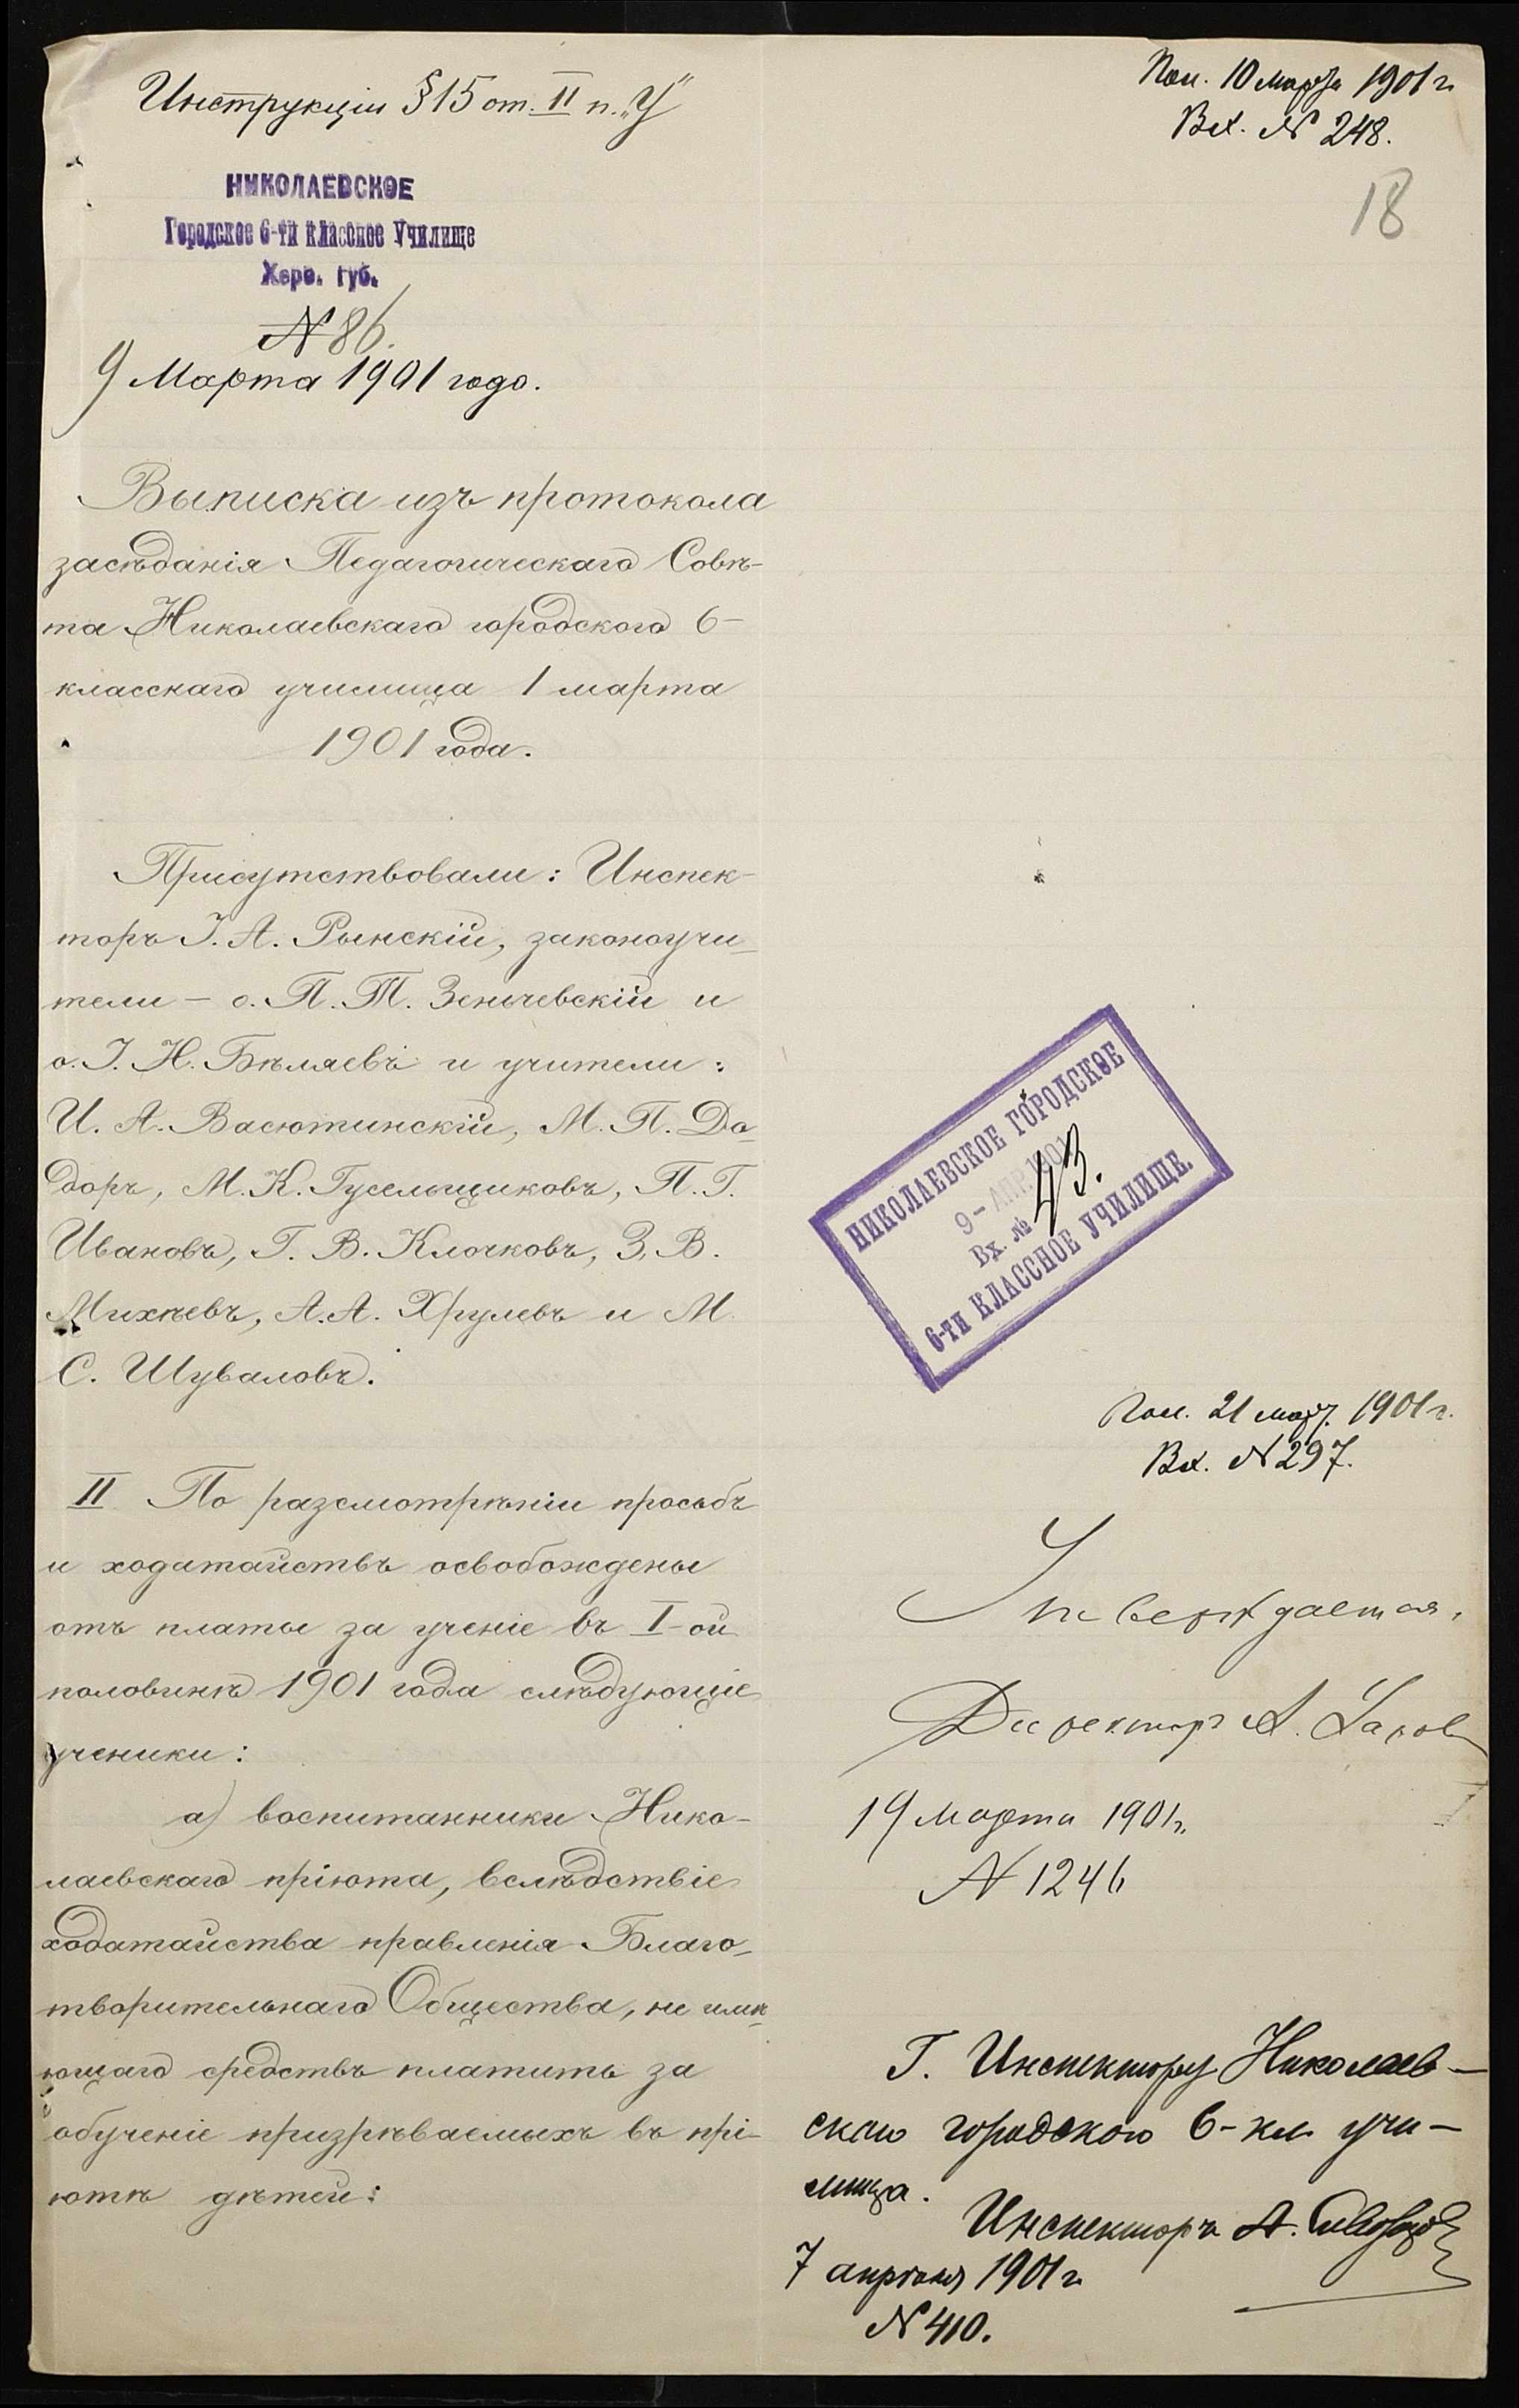 Инструкціи § 15 от. II п. „У“
Пол. 10 марта 1901 г.
Вх. № 248.
18
НИКОЛАЕВСКОЕ
Городское 6-ти классное Училище
Херс. губ.
№ 86.
9 Марта 1901 года.
Выписка изъ протокола
засѣданія Педагогическаго Совѣ-
та Николаевскаго городского 6-
класснаго училища 1 марта
1901 года.
Присутствовали: Инспек-
торъ І. А. Рынскій, законоучи-
тели – о. П. Т. Зеньчевскій и
о. І. Н. Бѣляевъ и учители:
И. А. Васютинскій, М. П. До-
доръ, М. К. Гусельщиковъ, П. Г.
Ивановъ, Г. В. Клочковъ, З. В.
Михѣевъ, А. А. Хрулевъ и М.
С. Шуваловъ.
II По разсмотрѣніи просьбъ
и ходатайствъ освобождены
отъ платы за ученіе въ I-ой
половинѣ 1901 года слѣдующіе
ученики:
а) воспитанники Нико-
лаевскаго пріюта, вслѣдствіе
ходатайства правленія Благо-
творительнаго Общества, не имѣ-
ющаго средствъ платить за
обученіе призрѣваемыхъ въ прі-
ютѣ дѣтей:
НИКОЛАЕВСКОЕ ГОРОДСКОЕ
9 - АПР. 1901
Вх. № 43.
6-ТИ КЛАССНОЕ УЧИЛИЩЕ.
Пол. 21 мар. 1901 г.
Вх. № 297.
Утверждается.
Директоръ А.
19 Марта 1901 г.
№ 1246
Г. Инспектору Николаев-
скаго городского 6-кл. учи-
лища.
Инспекторъ А.
7 апрѣля 1901 г.
№ 410.